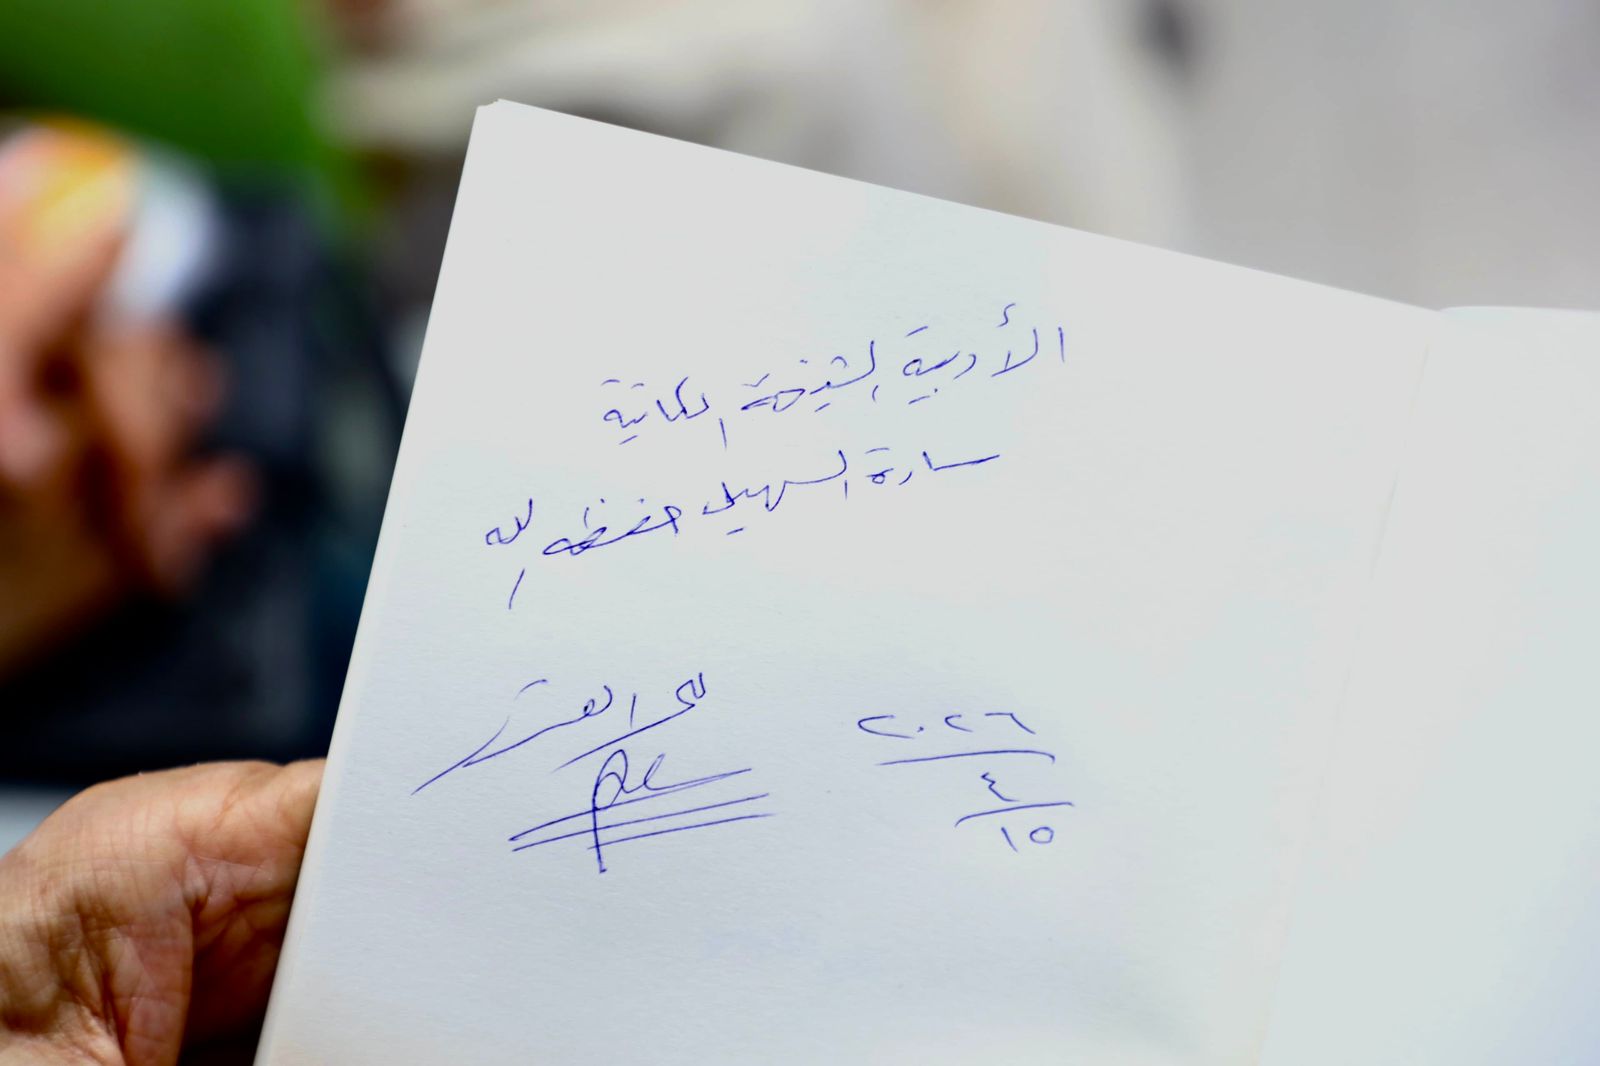 الأديبة الشيخة الكاتبة
سارة السهيل حفظه الله
٢٠٢٦
٤
١٥